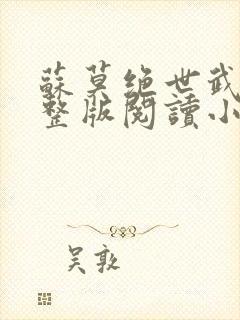 蘇莫绝世武
整版閱讀小
吴敦